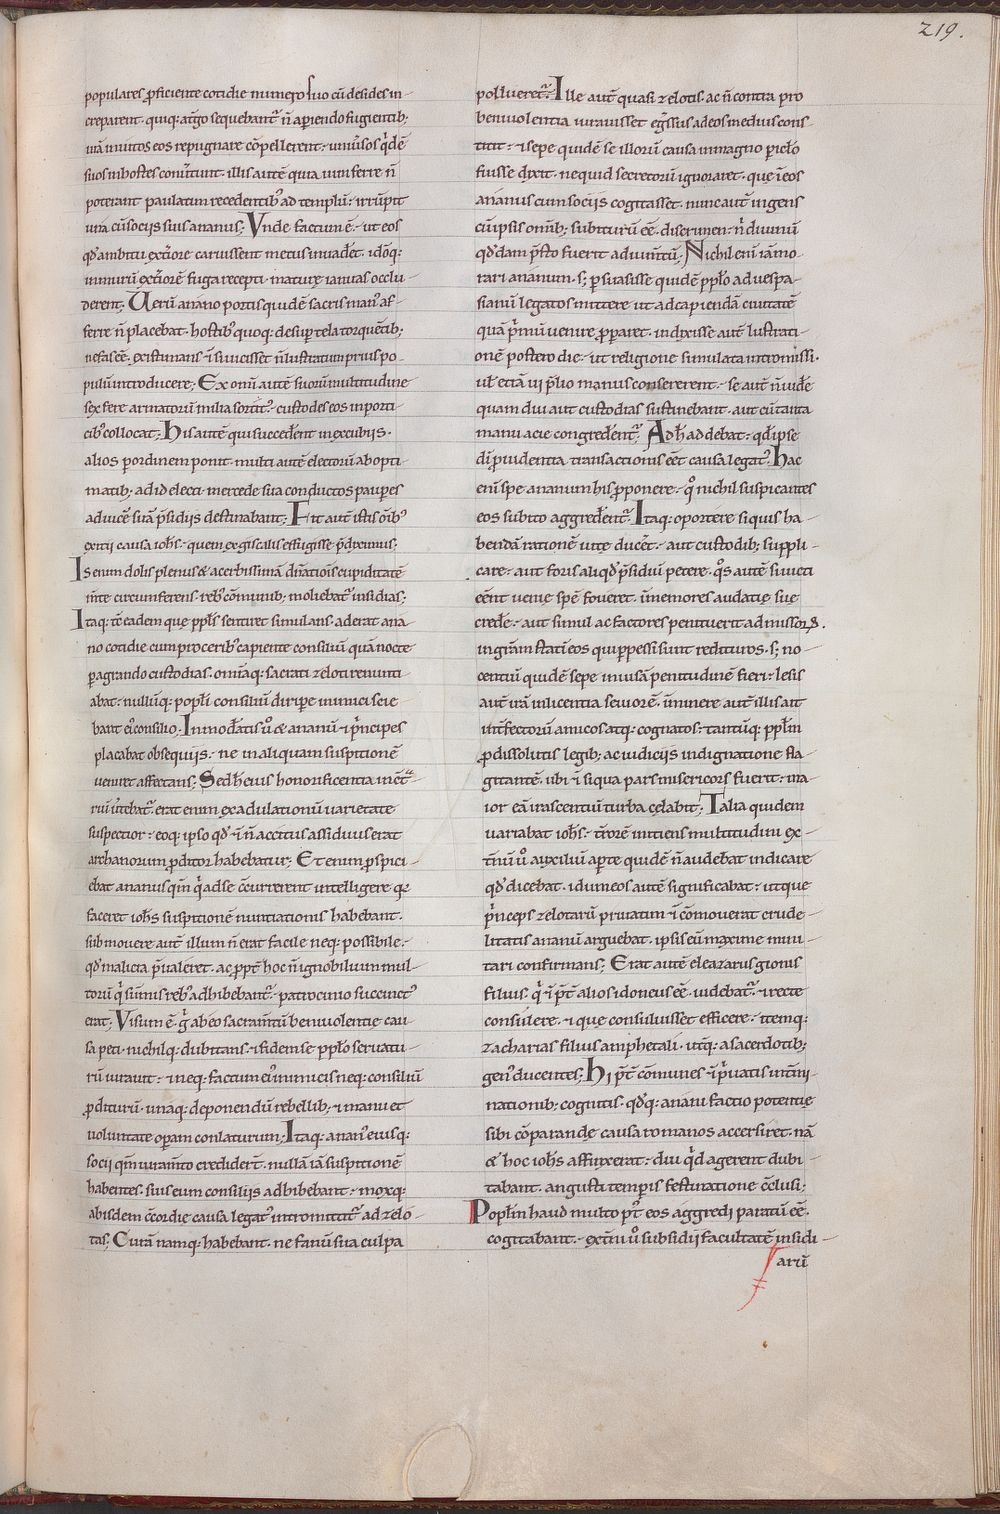 219.
populares ꝓficiente cotidie numero suo cū desides in
creparent. quiq; atgo sequebantᷣ n̄ aperiendo fugientib;
uiā inuitos eos repugnare cōpellerent. uniūsos q̇dē
suos in hostes conūtunt. illis autē quia uim ferre n̄
poterant paulatim recedentibꝰ ad templū. irrūpit
una cū sociis suis ananus; Vnde factum ē. ut eos
qđ ambitu exteriore caruissent metus inuaderet. idoq;
in murū exteriorē fuga recepti. mature ianuas occlu
derent; Uerū anano portis quidē sacris manꝰ af
ferre n̄ placebat. hostibꝰ quoq; desup tela torquētib;
nefas eē. existimans & si uicisset n̄ lustratum prius po
pulū introducere; Ex omī autē suorū multitudine
sex fere armatorū milia sortitᷣ. custodes eos in porti
cibꝰ collocat; His autē qui succedent in excubiis.
alios p ordinem ponit. multi autē electorū ab opti
matib; ad id electi. mercede sua conductos paupes
ad uicē suā p̄sidiis destinabant; Fit aut̄ istis om̄ibꝰ
exitii causa ioħs. quem ex giscalis effugisse p̄diximus;
Is enim dolis plenus & acerbissimā dn̄ationis cupiditatē
m̄te circumferens. rebꝰ cōmunib; moliebatᷣ insidias;
Itaq; tc̄ eadem que ppłs sentiret simulans. aderat ana
no cotidie cum procerib; capiente consiliū quā nocte
pagrando custodias. omniaq; sacrati zeloti renunti
abat. nullūq; popłi consiliū diripe inimici scie
bant ei consilio. Inmodatis ū & ananū & p̄ncipes
placabat obsequiis. ne in aliquam suspitionē
ueniret affectans; Sed ħ eius honorificentia in c̄t
riū ūtebatᷣ. erat enim ex adulationū uarietate
suspectior. eoq; ipso qđ & n̄ accitus assiduus erat
archanorum ꝓditor habebatur; Et enim pspici
ebat ananus qm̄ q̇ ad se c̄currerent intelligere qᷓ
faceret ioħs suspitionē nuntiationis habebant.
submouere aut̄ illum n̄ erat facile neq; possibile.
qđ malicia p̄ualeret. ac ppt̄ hoc n̄ ignobiliuum mul
torū q̇ summis rebꝰ adhibebantᷣ. patrocinio succinctꝰ
erat; Visum ē. ḡ ab eo sacram̄tū beniuolentie cau
sa peti. nichilq; dubitans. & fidem se pplo seruatu
rū iurauit. & neq; factum ei inimicis neq; consiliū
ꝓditurū. unaq; deponendū rebellib; & manu et
uoluntate opam conlaturum; Itaq; ananꝰ eiusq;
socii qm̄ iuram̄to crediderī. nullā iā suspitionē
habentes. suis eum consiliis adhibebant. moxq;
ab isdem c̄cordie causa legatꝰ intromittitᷣ ad zelo
tas. Curā namq; habebant. ne fanū sua culpa
pollueretᷣ. Ille aut̄ quasi zelotis. ac n̄ contra pro
beniuolentia iurauisset egressus ad eos medius cons
titit. & sepe quidē se illorū causa in magno pic̄lo
fuisse dixit. ne quid secretorū ignoraret. que in eos
ananus cum sociis cogitasset. nunc aut̄ ingens
cū ipsis omib; subiturū eē. discrimen. n̄ diuinū
qđdam p̄sto fuerit adiuuntū. Nichil enī iā mo
rari ananum. s; psuasisse quidē pplo ad uespa
sianū legatos mittere ut ad capiendā ciuitatē
quā p̄mū uenire ꝓparet. indixisse aut̄ lustrati
onē postero die. ut religione simulata intromissi.
ul̄ etiā ui p̄lio manus consererent. se aut̄ n̄ uidē
quam diu aut custodias sustinebant. aut cū tanta
manu acie congredentᷣ. Ad ħ addebat. qđ ipse
di puidentia transactionis eēt causa legatꝰ. Hac
enī spe ananum his ꝓponere. qͦ nichil suspicantes
eos subito aggrederentᷣ. Itaq; oportere siquis ha
bendā rationē uite ducēt. aut custodib; suppli
care. aut foris aliqđ p̄sidiū petere. qͦs autē si uicti
eēnt uenię spē foueret. īmemores audatię suę
credē. aut simul ac factores penituerit admissoꝝ.
in grām statī eos qui ppessi sunt redituros. s; no
centiū quidē sepe inuisā penitudinē fieri. lesis
aut̄ irā in licentia seuiorē. iminere aut̄ illis ait
int̄fectorū amicos atq; cognatos. tantūq; ppłm
ꝓ dissolutis legib; ac iudiciis indignatione fla
gitantē. ubi & si qua pars misericors fuerit. ma
ior eā irascentiū turba celabit; Talia quidem
uariabat ioħs. t̄rorē initiens multitudini. ex
t̄nū ū auxiliū apte quidē n̄ audebat indicare
qđ dicebat. idumeos autē significabat. utque
p̄nceps zelotarū priuatim & cōmouerat crude
litatis ananū arguebat. ipsis eū maxime mini
tari confirmans; Erat autē eleazarus gionis
filius. q̇ & p̄t alios idoneus eē uidebatᷣ. & recte
consulere. & que consuluisset efficere. itemq;
zacharias filius amphetali. ut̄q; a sacerdotib;
genꝰ ducentes; Hi p̄t cōmunes & p̄uatis int̄mi
nationib; cognitis. qđq; anani factio potentię
sibi cōparandę causa romanos accersiret. nā
& hoc ioħs affinxerat. diu q̇d agerent dubi
tabant. angusti temporis festinatione c̄clusi;
Popłm haud multo p̄t eos aggredi paratū eē.
cogitabant. ext̄nū ū subsidii facultatē insidi
arū